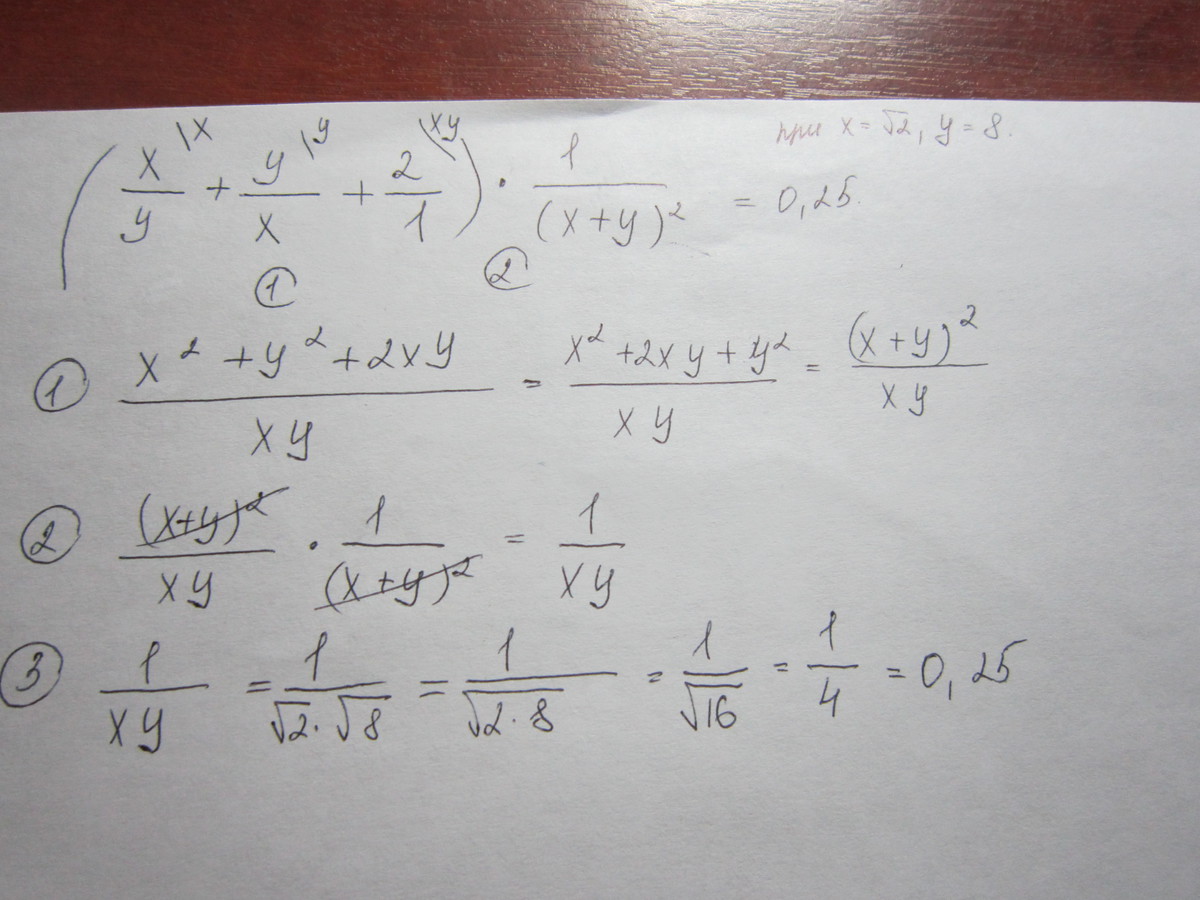 при x = √2, y = 8.
(x/y \x + y/x \y + 2/1 \xy) · 1/(x+y)² = 0,25.
① ②
① (x² + y² + 2xy)/(xy) = (x² + 2xy + y²)/(xy) = (x+y)²/(xy)
② (x+y)²/(xy) · 1/(x+y)² = 1/(xy)
③ 1/(xy) = 1/(√2 · √8) = 1/√(2·8) = 1/√16 = 1/4 = 0,25